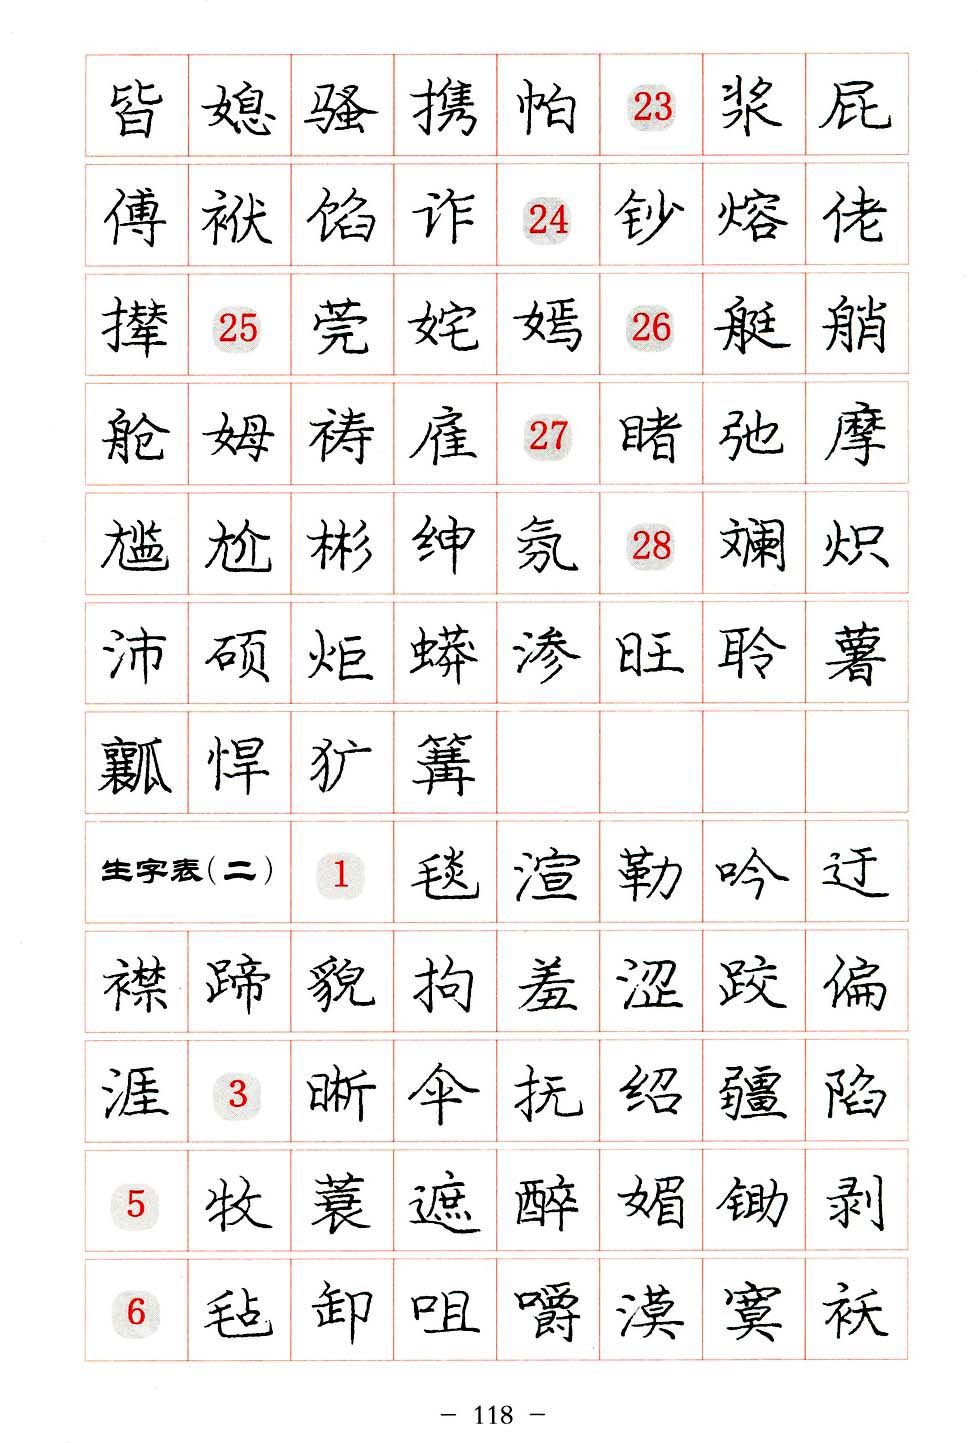 皆媳骚携帕23浆屁
傅袱馅诈24钞熔佬
撵25莞姹嫣26艇艄
舱姆祷雇27睹弛摩
尴尬彬绅氛28斓炽
沛硕炬蟒渗旺聆薯
瓤悍犷篝
生字表(二) 1毯渲勒吟迂
襟蹄貌拘羞涩跤偏
涯3晰伞抚绍疆陷
5牧蓑遮醉媚锄剥
6毡卸咀嚼漠寞袄
- 118 -